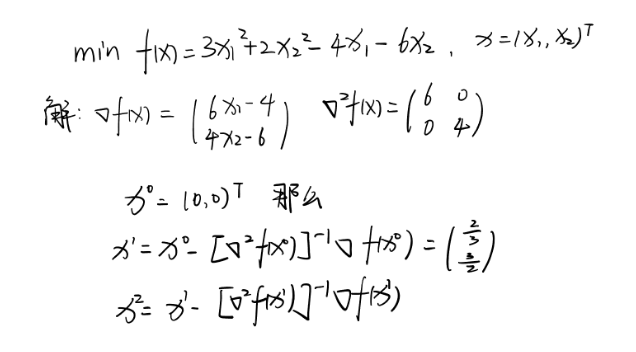 min f(x) = 3x₁² + 2x₂² - 4x₁ - 6x₂ , x = (x₁, x₂)ᵀ
解: ∇f(x) = (6x₁-4 4x₂-6) ∇²f(x) = (6 0 0 4)
x⁰ = (0,0)ᵀ 那么
x¹ = x⁰ - [∇²f(x⁰)]⁻¹ ∇f(x⁰) = (2/3 3/2)
x² = x¹ - [∇²f(x¹)]⁻¹ ∇f(x¹)